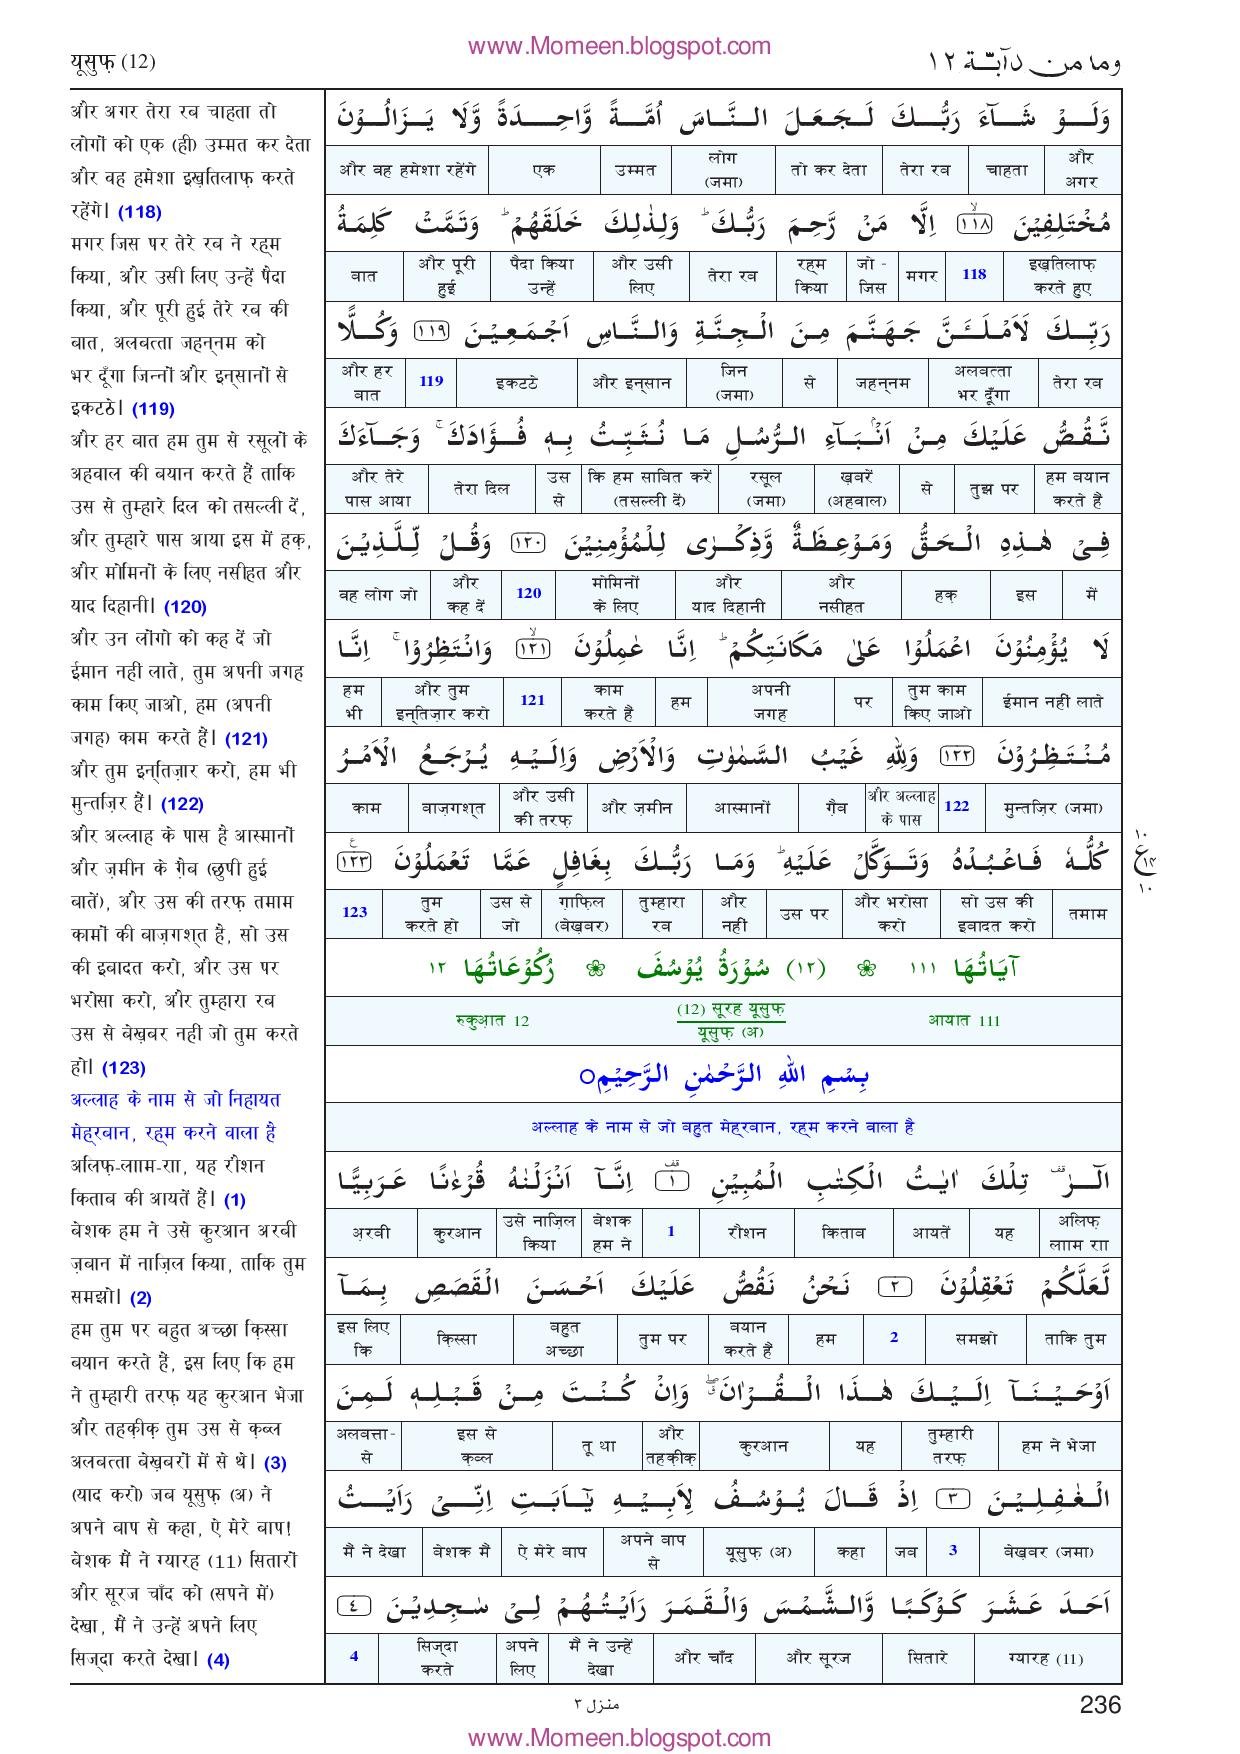 www.Momeen.blogspot.com
यूसुफ़ (12)
وما من دآبّة ١٢
और अगर तेरा रब चाहता तो
लोगों को एक (ही) उम्मत कर देता
और वह हमेशा इख़तिलाफ़ करते
रहेंगे। (118)
मगर जिस पर तेरे रब ने रह्म
किया, और उसी लिए उन्हें पैदा
किया, और पूरी हुई तेरे रब की
बात, अलबत्ता जहन्नम को
भर दूँगा जिन्नों और इन्सानों से
इकटठे। (119)
और हर बात हम तुम से रसूलों के
अहवाल की बयान करते हैं ताकि
उस से तुम्हारे दिल को तसल्ली दें,
और तुम्हारे पास आया इस में हक़,
और मोमिनों के लिए नसीहत और
याद दिहानी। (120)
और उन लोंगो को कह दें जो
ईमान नहीं लाते, तुम अपनी जगह
काम किए जाओ, हम (अपनी
जगह) काम करते हैं। (121)
और तुम इन्तिज़ार करो, हम भी
मुन्तज़िर हैं। (122)
और अल्लाह के पास है आस्मानों
और ज़मीन के ग़ैब (छुपी हुई
बातें), और उस की तरफ़ तमाम
कामों की बाज़गश्त है, सो उस
की इबादत करो, और उस पर
भरोसा करो, और तुम्हारा रब
उस से बेख़बर नहीं जो तुम करते
हो। (123)
अल्लाह के नाम से जो निहायत
मेह्रबान, रहम करने वाला है
अलिफ़-लााम-राा, यह रौशन
किताब की आयतें हैं। (1)
बेशक हम ने उसे कुरआन अरबी
ज़बान में नाज़िल किया, ताकि तुम
समझो। (2)
हम तुम पर बहुत अच्छा क़िस्सा
बयान करते हैं, इस लिए कि हम
ने तुम्हारी तरफ़ यह कुरआन भेजा
और तहक़ीक़ तुम उस से क़ब्ल
अलबत्ता बेख़बरों में से थे। (3)
(याद करो) जब यूसुफ़ (अ) ने
अपने बाप से कहा, ऐ मेरे बाप!
बेशक मैं ने ग्यारह (11) सितारों
और सूरज चाँद को (सपने में)
देखा, मैं ने उन्हें अपने लिए
सिज्दा करते देखा। (4)
وَلَوْ شَآءَ رَبُّكَ لَجَعَلَ النَّاسَ اُمَّةً وَّاحِدَةً وَّلَا يَزَالُوْنَ
और अगर चाहता तेरा रब तो कर देता लोग (जमा) उम्मत एक और वह हमेशा रहेंगे
مُخْتَلِفِيْنَ ١١٨ اِلَّا مَنْ رَّحِمَ رَبُّكَ ؕ وَلِذٰلِكَ خَلَقَهُمْ ؕ وَتَمَّتْ كَلِمَةُ
इख़तिलाफ़ करते हुए 118 मगर जो - जिस रह्म किया तेरा रब और उसी लिए पैदा किया उन्हें और पूरी हुई बात
رَبِّكَ لَاَمْلَـَٔنَّ جَهَنَّمَ مِنَ الْجِنَّةِ وَالنَّاسِ اَجْمَعِيْنَ ١١٩ وَكُلًّا
तेरा रब अलबत्ता भर दूँगा जहन्नम से जिन (जमा) और इन्सान इकटठे 119 और हर बात
نَّقُصُّ عَلَيْكَ مِنْ اَنْۢبَآءِ الرُّسُلِ مَا نُثَبِّتُ بِهٖ فُؤَادَكَ ۚ وَجَآءَكَ
हम बयान करते हैं तुझ पर से ख़बरें (अहवाल) रसूल (जमा) कि हम साबित करें (तसल्ली दें) उस से तेरा दिल और तेरे पास आया
فِىْ هٰذِهِ الْحَقُّ وَمَوْعِظَةٌ وَّذِكْرٰى لِلْمُؤْمِنِيْنَ ١٢٠ وَقُلْ لِّلَّذِيْنَ
में इस हक़ और नसीहत और याद दिहानी मोमिनों के लिए 120 और कह दें वह लोग जो
لَا يُؤْمِنُوْنَ اعْمَلُوْا عَلٰى مَكَانَتِكُمْ ؕ اِنَّا عٰمِلُوْنَ ١٢١ وَانْتَظِرُوْا ۚ اِنَّا
ईमान नहीं लाते तुम काम किए जाओ पर अपनी जगह हम काम करते हैं 121 और तुम इन्तिज़ार करो हम भी
مُنْتَظِرُوْنَ ١٢٢ وَلِلّٰهِ غَيْبُ السَّمٰوٰتِ وَالْاَرْضِ وَاِلَيْهِ يُرْجَعُ الْاَمْرُ
मुन्तज़िर (जमा) 122 और अल्लाह के पास ग़ैब आस्मानों और ज़मीन और उसी की तरफ़ बाज़गश्त काम
كُلُّهٗ فَاعْبُدْهُ وَتَوَكَّلْ عَلَيْهِ ؕ وَمَا رَبُّكَ بِغَافِلٍ عَمَّا تَعْمَلُوْنَ ١٢٣
١٠ ع ١٤ ١٠
तमाम सो उस की इबादत करो और भरोसा करो उस पर और नहीं तुम्हारा रब ग़ाफ़िल (बेख़बर) उस से जो तुम करते हो 123
آيَاتُهَا ١١١ ❀ (١٢) سُوْرَةُ يُوْسُفَ ❀ رُكُوْعَاتُهَا ١٢
आयात 111 (12) सूरह यूसुफ़ यूसुफ़ (अ) रुकुआ़त 12
بِسْمِ اللهِ الرَّحْمٰنِ الرَّحِيْمِ○
अल्लाह के नाम से जो बहुत मेह्रबान, रह्म करने वाला है
الٓرٰ ۫ تِلْكَ اٰيٰتُ الْكِتٰبِ الْمُبِيْنِ ١ اِنَّآ اَنْزَلْنٰهُ قُرْءٰنًا عَرَبِيًّا
अलिफ़ लााम राा यह आयतें किताब रौशन 1 बेशक हम ने उसे नाज़िल किया कुरआन अ़रबी
لَّعَلَّكُمْ تَعْقِلُوْنَ ٢ نَحْنُ نَقُصُّ عَلَيْكَ اَحْسَنَ الْقَصَصِ بِمَآ
ताकि तुम समझो 2 हम बयान करते हैं तुम पर बहुत अच्छा क़िस्सा इस लिए कि
اَوْحَيْنَآ اِلَيْكَ هٰذَا الْقُرْاٰنَ ۖ وَاِنْ كُنْتَ مِنْ قَبْلِهٖ لَمِنَ
हम ने भेजा तुम्हारी तरफ़ यह कुरआन और तहक़ीक़ तू था इस से क़ब्ल अलबत्ता- से
الْغٰفِلِيْنَ ٣ اِذْ قَالَ يُوْسُفُ لِاَبِيْهِ يٰٓاَبَتِ اِنِّىْ رَاَيْتُ
बेख़बर (जमा) 3 जब कहा यूसुफ़ (अ) अपने बाप से ऐ मेरे बाप बेशक मैं मैं ने देखा
اَحَدَ عَشَرَ كَوْكَبًا وَّالشَّمْسَ وَالْقَمَرَ رَاَيْتُهُمْ لِىْ سٰجِدِيْنَ ٤
ग्यारह (11) सितारे और सूरज और चाँद मैं ने उन्हें देखा अपने लिए सिज्दा करते 4
منزل ٣
236
www.Momeen.blogspot.com